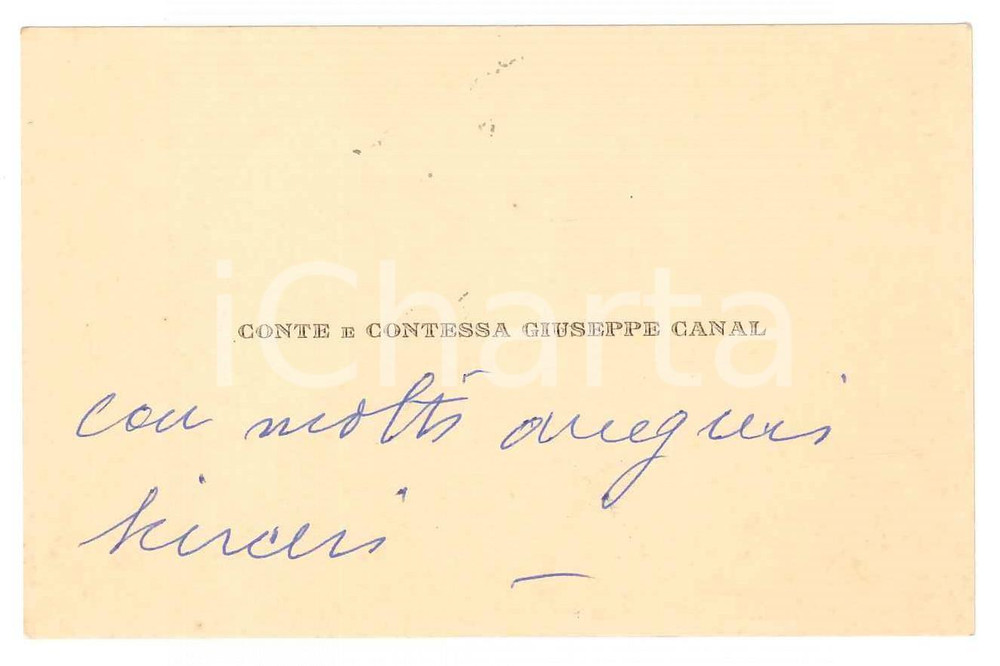 iCharta
CONTE E CONTESSA GIUSEPPE CANAL
con molti auguri
sinceri